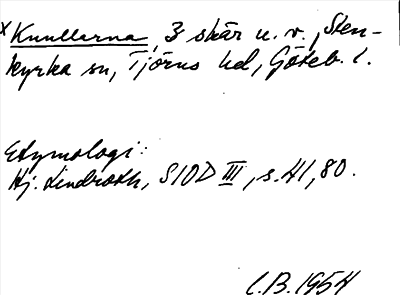 x Knullarna, 3 skär u. v., Sten-
kyrka sn, Tjörns hd, Göteb. l.
Etymologi:
Hj. Lindroth, SIOD III, s. 41, 80.
C.B. 1954